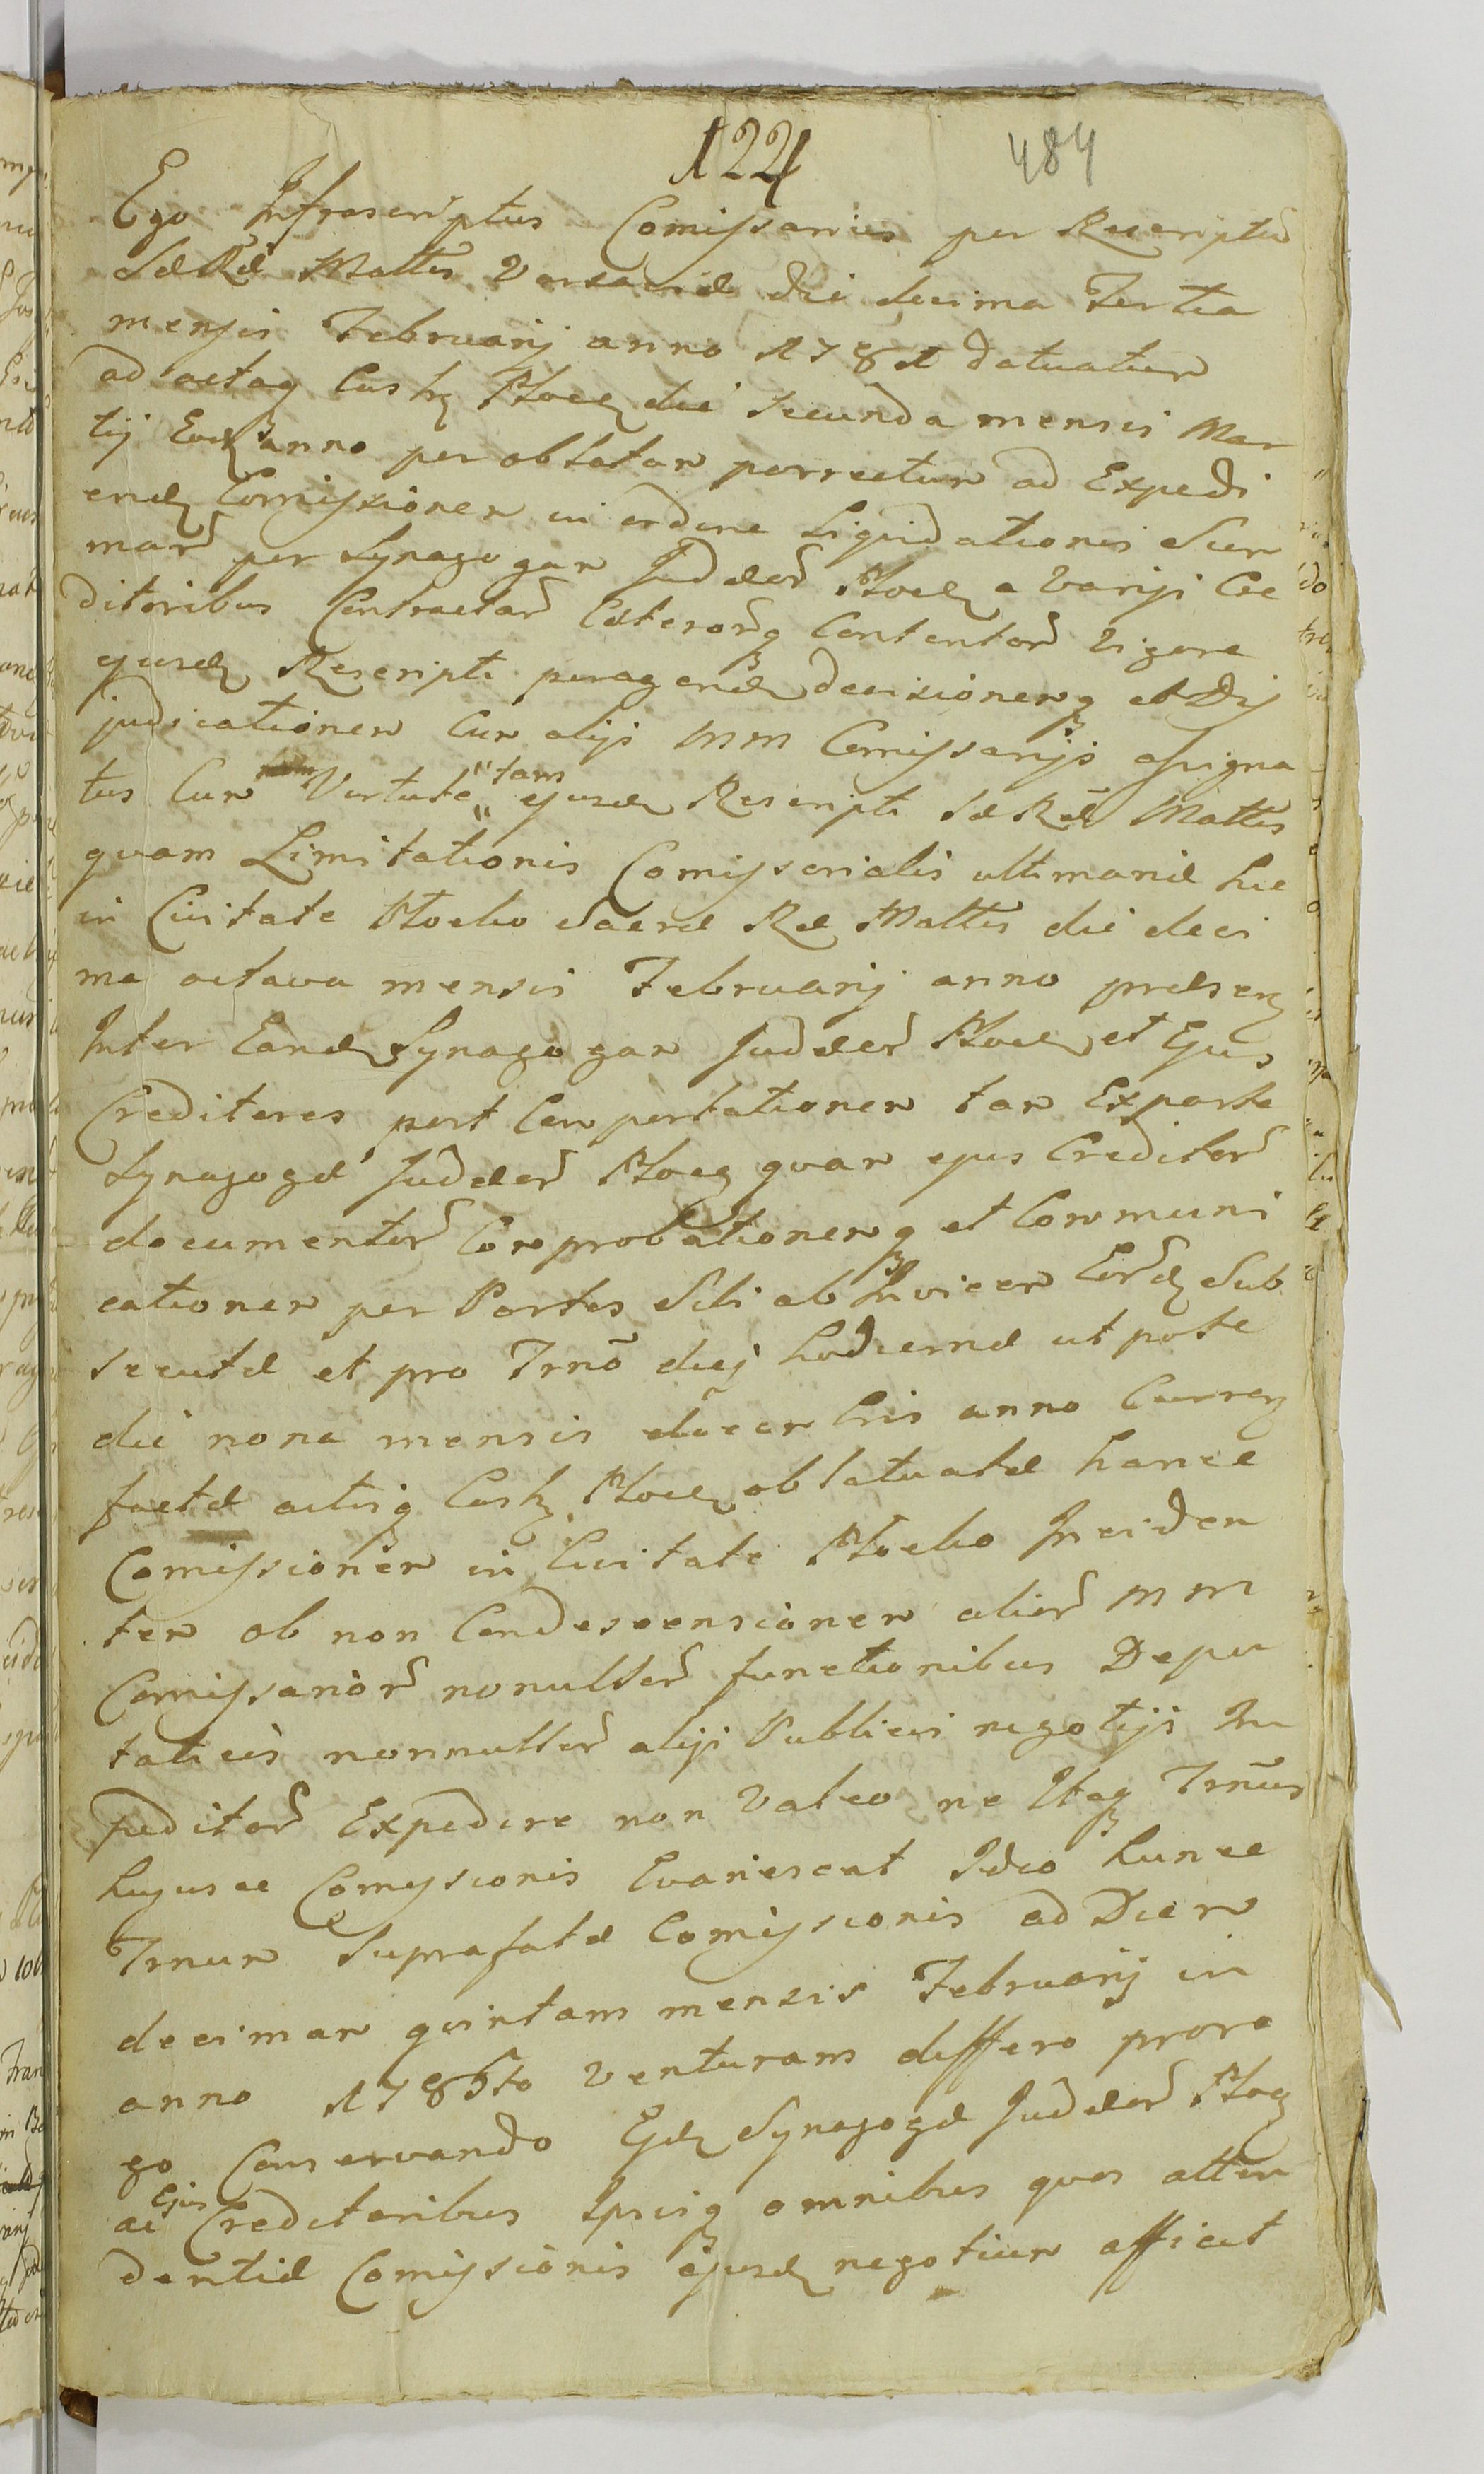 122
484
Ego Infrascriptus Comissarius per Rescriptū
SæRæ Mattis Varsaviæ die decima Tertia
mensis Februarij anno 1784 datuatum
ad actaq Castr Plocen die secunda mensis Mar
tij Eodq anno per oblatam porrectum ad Expedi
end Comissionem in ordine Liquidationis Sum
mar per Synagogam Judæor Plocen a Varijs Cre
ditoribus Contractar Cæterorq Contentor Vigore
ejusd Rescripti peragend decisionemq et Dij
judicationem Cum alijs MM Comissarijs assigna
tus Cum Virtute "tam" ejusd Rescripti SæRæ Mattis
quam Limitationis Comissorialis ultimariæ hic
in Civitate Plocko Sacræ Ræ Mattis die deci
ma octava mensis Februarij anno præsen
Inter Eand Synagogam Judæor Plocen et Ejus
Creditores post Comportationem tam Exparte
Synagogæ Judæor Plocen quam ejus Creditor
documentor Comprobationemq et Communi
cationem per Partes Sibi ab Invicem Eord Sub
secutæ et pro Trnō diej hodiernæ utpote
die nona mensis xbris anno Curren
factæ actisq Castr Plocen oblatuatæ hance
Comissionem in Civitate Plocko Inciden
tem ob non Condescensionem alior MM
Comissarior nonullor functionibus Depu
taticis nonnullor alijs Publicis negotijs Im
peditor Expedire non Valeo ne Itaq Trnūs
hujusce Comissionis Evanescat Ideo hunce
Trnum Suprafatæ Comissionis ad Diem
decimam quintam mensis Februarij in
anno 1785to Venturam differo proro
go Conservando Ejd Synagogæ Judæor Plocen
ac Ejus Creditoribus Ipsisq omnibus quos atten
dentiæ Comissionis ejusd negotium afficit